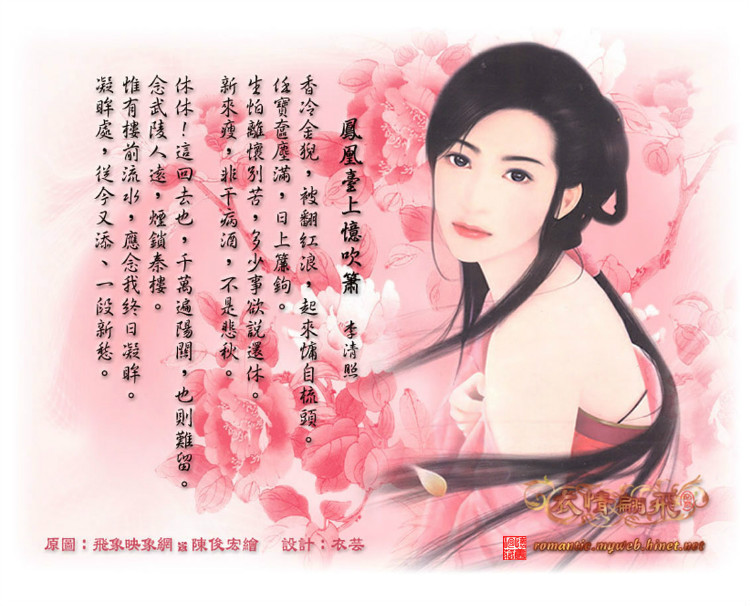 鳳凰臺上憶吹簫 李清照
香冷金猊，被翻紅浪，起來慵自梳頭。
任寶奩塵滿，日上簾鉤。
生怕離懷別苦，多少事欲說還休。
新來瘦，非干病酒，不是悲秋。
休休！這回去也，千萬遍陽關，也則難留。
念武陵人遠，煙鎖秦樓。
惟有樓前流水，應念我終日凝眸。
凝眸處，從今又添、一段新愁。
衣情翩飛
原圖：飛象映象網 陳俊宏繪 設計：衣芸
romantic.myweb.hinet.net